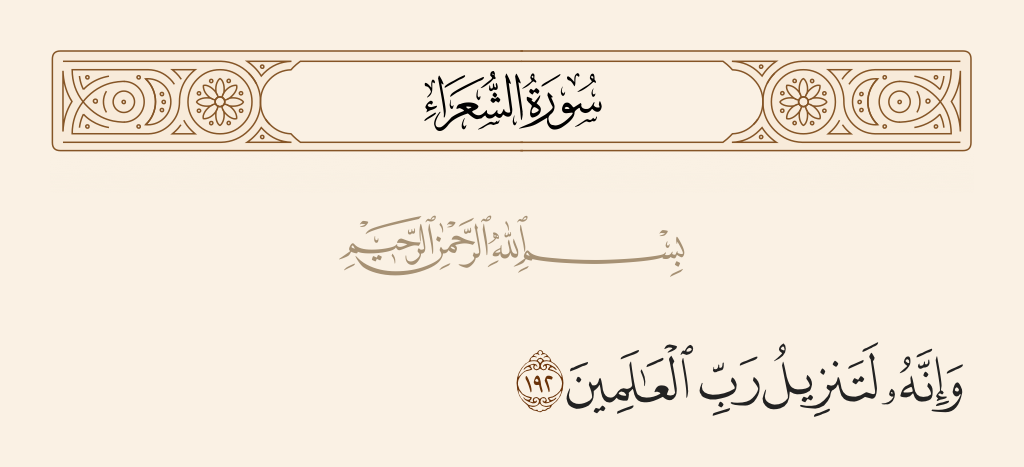 سُورَةُ الشُّعَرَاءِ
بِسْمِ ٱللَّهِ ٱلرَّحْمَٰنِ ٱلرَّحِيمِ
وَإِنَّهُۥ لَتَنزِيلُ رَبِّ ٱلْعَٰلَمِينَ ١٩٢